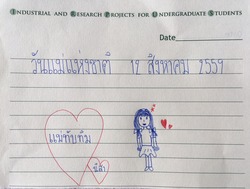 INDUSTRIAL AND RESEARCH PROJECTS FOR UNDERGRADUATE STUDENTS
Date
วันแม่แห่งชาติ 12 สิงหาคม 2559
แม่ทับทิม